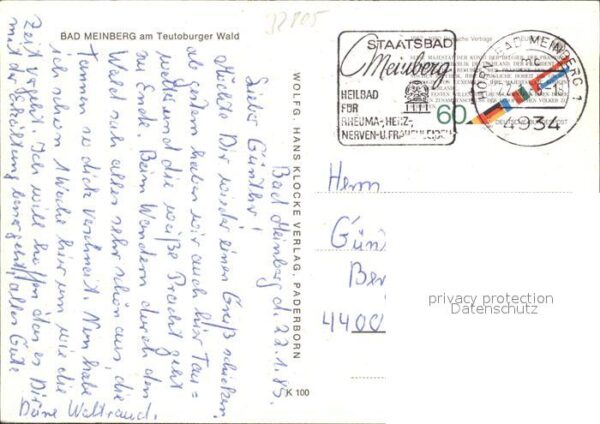 32805
BAD MEINBERG am Teutoburger Wald
Bad Meinberg d. 22.1.85.
Lieber Günther!
Möchte Dir wieder einen Gruß schicken.
ab gestern haben wir auch hier Tau=
wetter und die weiße Pracht geht
zu Ende. Beim Wandern durch den
Wald sah alles sehr schön aus, die
Tannen so dick verschneit. Nun habe
ich schon 1 Woche hier um wie die
Zeit vergeht. Ich will hoffen das es Dir
mit der Erkältung besser geht, alles Gute
Deine Waltraud.
WOLFG. HANS KLOCKE VERLAG, PADERBORN
K 100
STAATSBAD
Meinberg
HEILBAD
FÜR
RHEUMA-, HERZ-,
NERVEN-U. FRAUENLEIDEN
60
HORN-BAD MEINBERG 1
4934
DEUTSCHE BUNDESPOST
Herrn
Gün
Ber
4400
privacy protection
Datenschutz